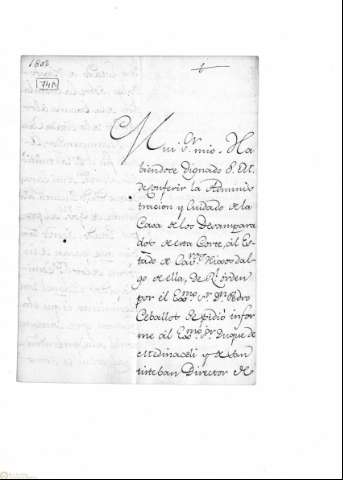 1802
74A
Mui Sr. mio. Ha
biendose dignado S. M.
de conferir la Adminis
tracion y Cuidado de la
Casa de los Desampara
dos de esta Corte, al Es
tado de Cavs. Hixosdal
go de ella, de Rl. orden
por el Exmo. Sr. Dn. Pedro
Ceballos se pidió infor
me al Exmo. Sor. Duque de
Medinaceli y Santi
isteban Director de